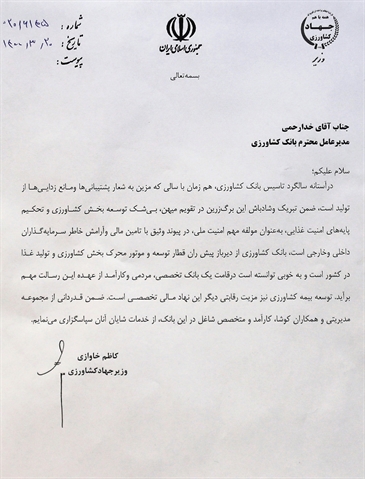 شماره: ۰۲۰/۶۱۴۵
تاریخ: ۱۴۰۰/۳/۲۰
پیوست:
جمهوری اسلامی ایران
همه با هم
جهاد
کشاورزی
وزیر
بسمه‌تعالی
جناب آقای خدارحمی
مدیرعامل محترم بانک کشاورزی
سلام علیکم؛
درآستانه سالگرد تاسیس بانک کشاورزی، هم زمان با سالی که مزین به شعار پشتیبانی‌ها ومانع زدایی‌ها از
تولید است، ضمن تبریک وشادباش این برگ‌زرین در تقویم میهن، بی‌شک توسعه بخش کشاورزی و تحکیم
پایه‌های امنیت غذایی، به‌عنوان مولفه مهم امنیت ملی، در پیوند وثیق با تامین مالی وآرامش خاطر سرمایه‌گذاران
داخلی وخارجی است، بانک کشاورزی از دیرباز پیش ران قطار توسعه و موتور محرک بخش کشاورزی و تولید غذا
در کشور است و به خوبی توانسته است درقامت یک بانک تخصصی، مردمی وکارآمد از عهده این رسالت مهم
برآید. توسعه بیمه کشاورزی نیز مزیت رقابتی دیگر این نهاد مالی تخصصی است. ضمن قدردانی از مجموعه
مدیریتی و همکاران کوشا، کارآمد و متخصص شاغل در این بانک، از خدمات شایان آنان سپاسگزاری می‌نمایم.
کاظم خاوازی
وزیرجهادکشاورزی